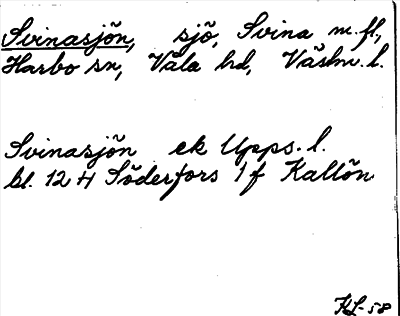 Svinasjön, sjö, Svina m. fl.,
Harbo sn, Våla hd, Västm. l.
Svinasjön ek Upps. l.
bl. 12 H Söderfors 1 f Kallön
KL-58